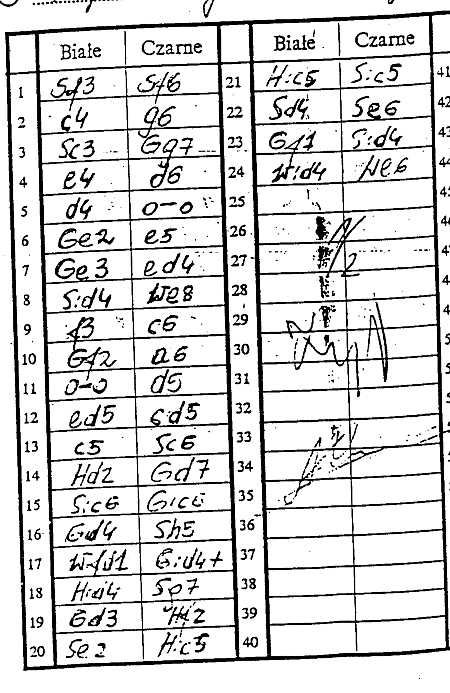 Białe Czarne
1 Sf3 Sf6
2 c4 g6
3 Sc3 Gg7
4 e4 d6
5 d4 0-0
6 Ge2 e5
7 Ge3 ed4
8 S:d4 We8
9 f3 c6
10 Gf2 a6
11 0-0 d5
12 ed5 cd5
13 c5 Sc6
14 Hd2 Gd7
15 S:c6 G:c6
16 Gd4 Sh5
17 Wfd1 G:d4+
18 H:d4 Sg7
19 Gd3
20 Se2 H:c5
Białe Czarne
21 H:c5 S:c5
22 Sd4 Se6
23 Gf1 S:d4
24 W:d4 We6
25
26
27
28
29
30
31
32
33
34
35
36
37
38
39
40
41
42
43